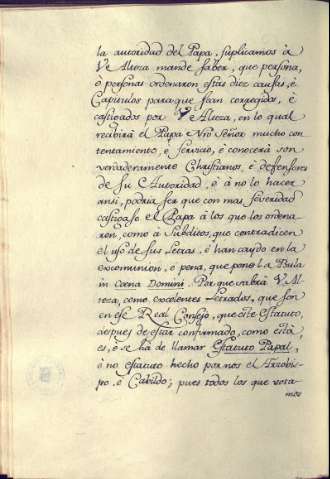 la autoridad del Papa, suplicamos à
V.e Alteza mande saber, que persona,
ò personas ordenaron estas diez causas, è
Capitulos para que sean corregidos, è
castigados por V.e Alteza, en lo qual
recibirà el Papa Nrõ Señor mucho con
tentamiento, è servicio, è conocerà son
verdaderamente Christianos, è defensores
de su Autoridad, è à no lo hacer
ansi, podria ser que con mas severidad
castigase el Papa à los que los ordena
ron, como à Subditos, que contradicen
el uso de sus Letras, è han caydo en la
excomunion, è pena, que pone la Bula
in Coena Domini. Porque sabrà V. Al
teza, como excelentes Letrados, que son
en ese Real Consejo, que este Estatuto,
despues de estàr confirmado, como està
es, è se ha de llamar Estatuto Papal,
è no estatuto hecho por nos el Arzobis
po, è Cabildo; pues todos los que vota
mos